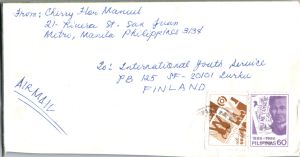 From: Cherry Flor Manuel
21- Rivera St. San Juan
Metro, Manila Philippines 3134
To: International Youth Service
PB 125 SF- 20101 Turku
FINLAND
AIRMAIL
PILIPINAS 60